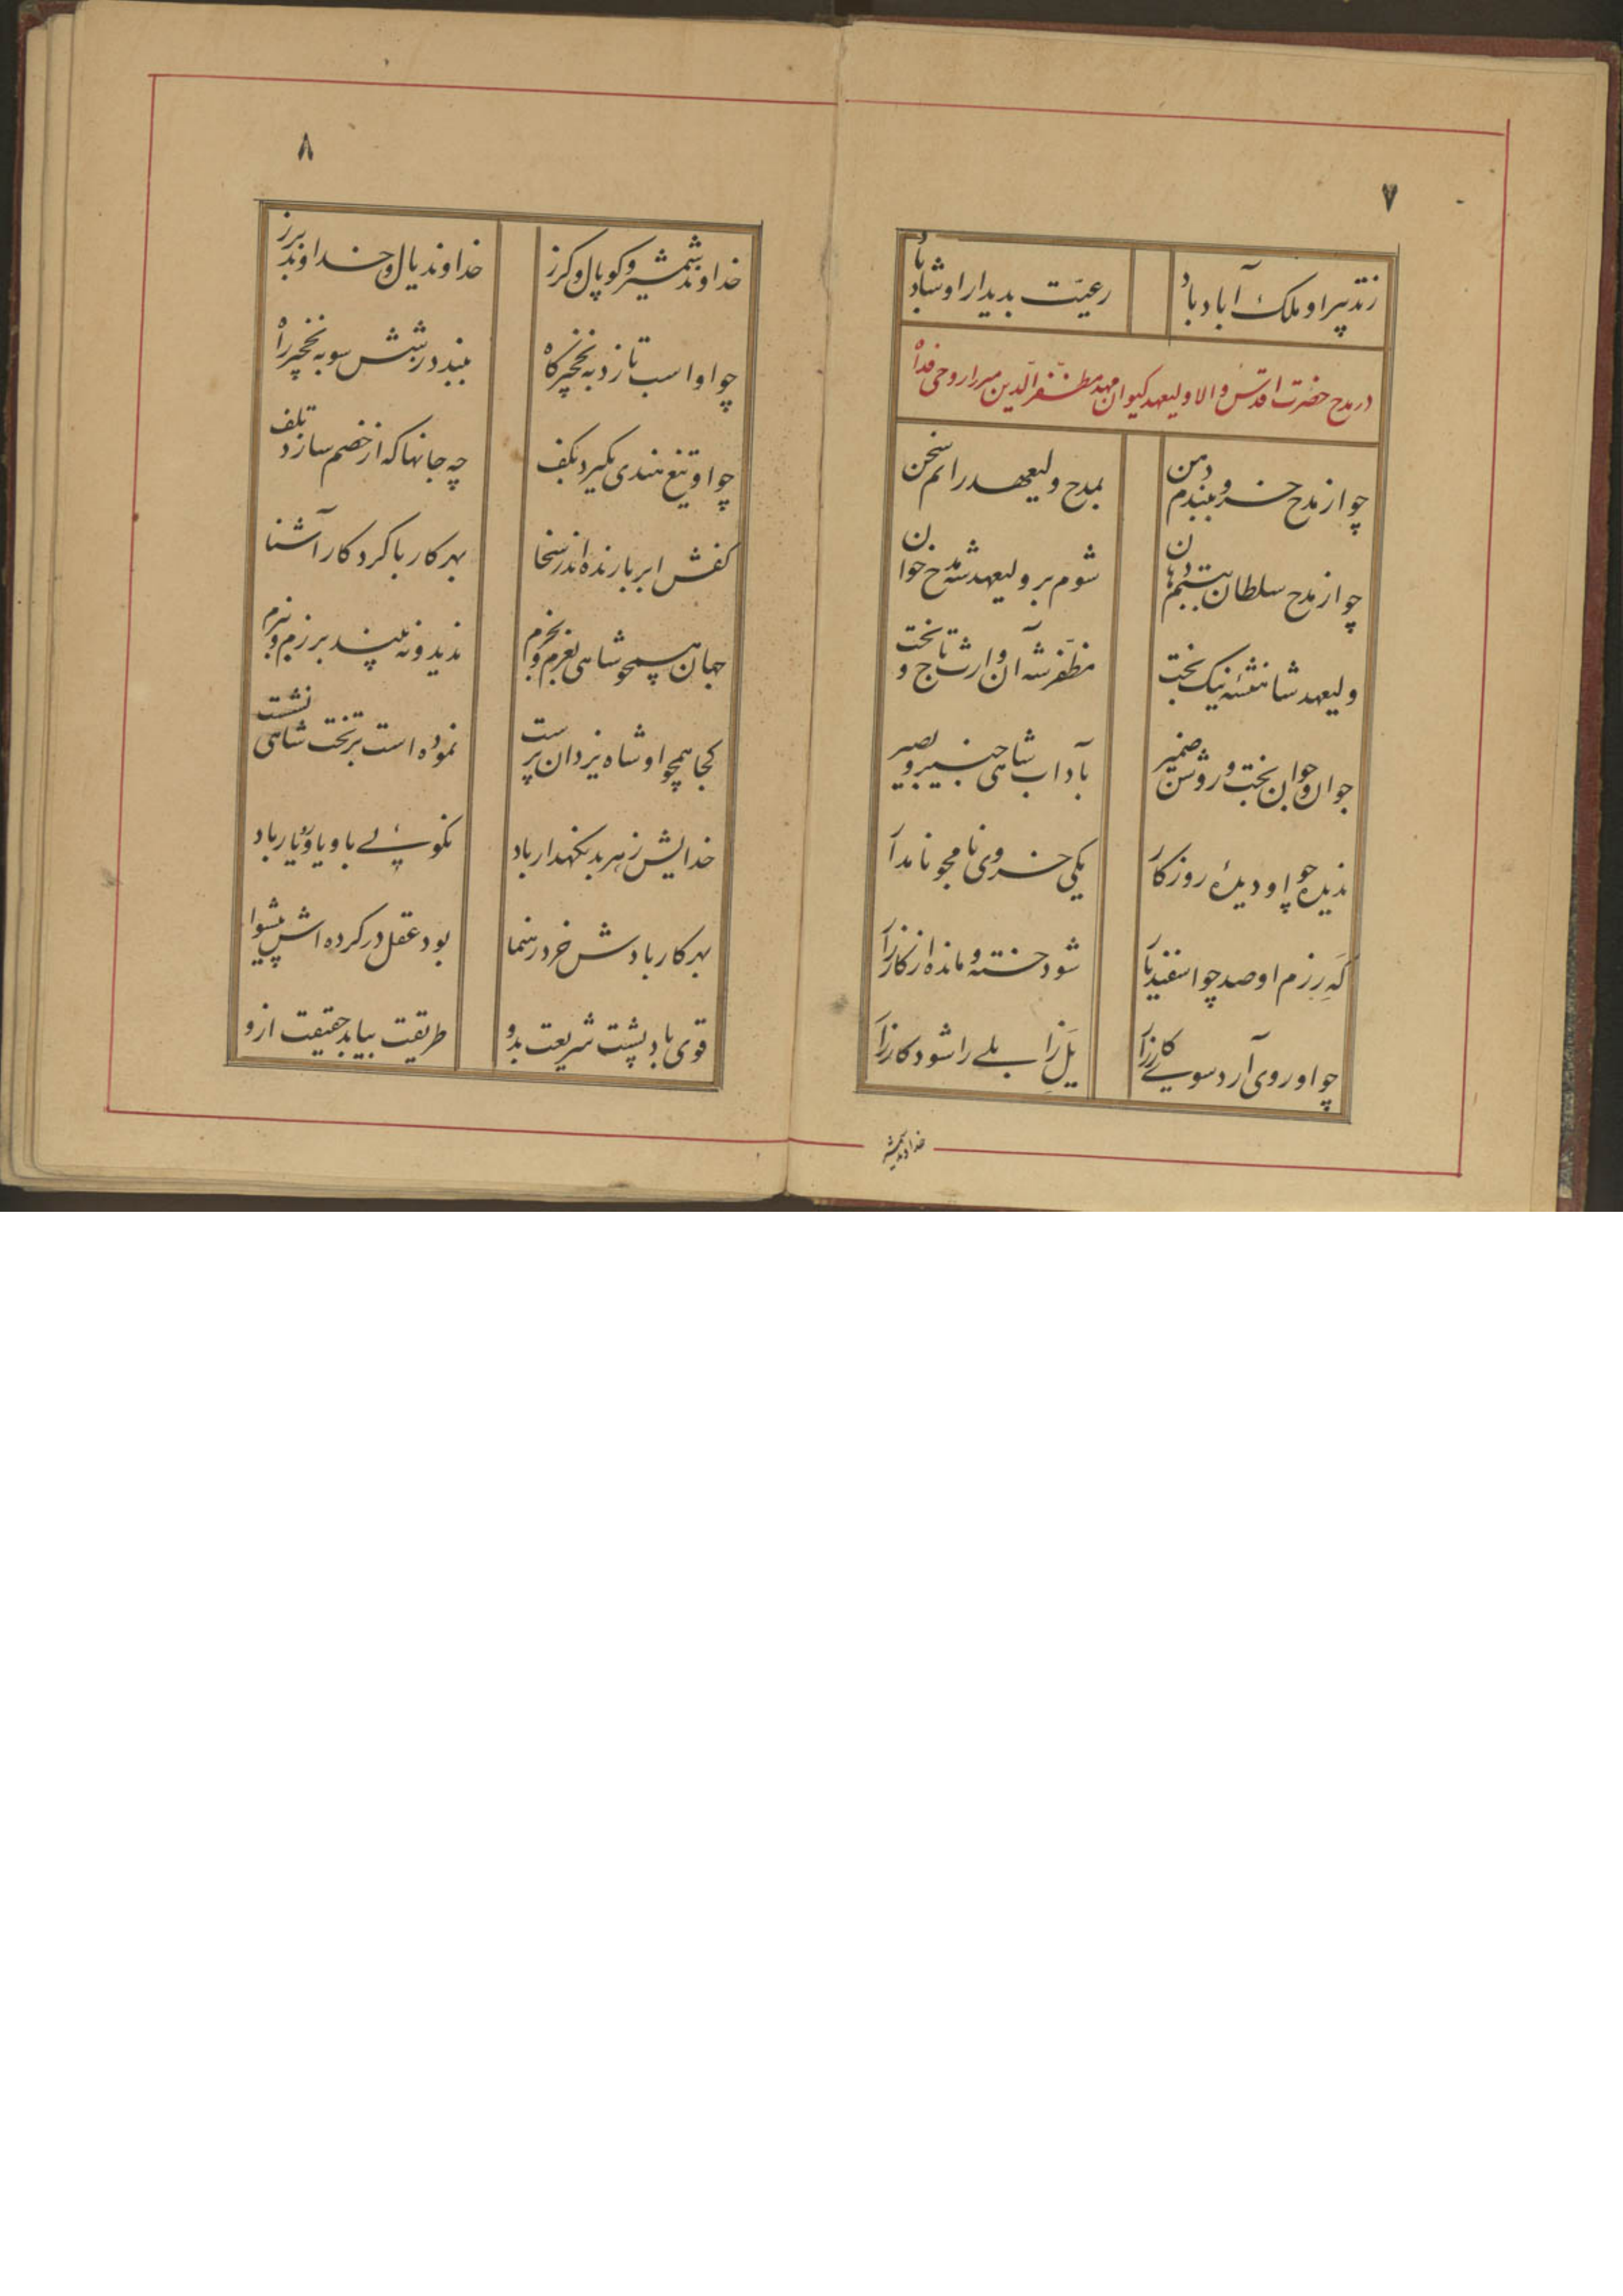 ۷
ز تدبیر او ملک آباد باد رعیّت بدیدار او شاد باد
در مدح حضرت اقدس والا ولیعهد کیوان مهد مظفّر الدّین میرزا روحی فداه
چو از مدح خسرو ببندم دهن بمدح ولیعهد رانم سخن
چو از مدح سلطان ببستم دهان شوم بر ولیعهد شه مدح خوان
ولیعهد شاهنشه نیک بخت مظفّر شه آن وارث تاج و تخت
جوان و جوان بخت و روشن ضمیر بآداب شاهی خبیر و بصیر
ندیده چو او دیدهٔ روزگار یکی خسروی نامجو نامدار
گهِ رزم او صد چو اسفندیار شود خسته و مانده از کارزار
چو او روی آرد سوی کارزار یلِ زابلی را شود کار زار
خداوند شمشیر
۸
خداوند شمشیر و کوپال و گرز خداوند یال و خداوند برز
چو او اسب تازد به نخچیرگاه ببندد ز شش سو به نخچیر راه
چو او تیغ هندی بگیرد بکف چه جانها که از خصم سازد تلف
کفش ابر بارنده اندر سخا بهر کار با کردگار آشنا
جهان همچو شاهی بعزم و بحزم ندید و نه بیند برزم و ببزم
کجا همچو او شاه یزدان پرست نموده است بر تخت شاهی نشست
خدایش ز هر بد نگهدار باد نکوئی باو یاور و یار باد
بهر کار بادش خرد رهنما بود عقل در کرده اش پیشوا
قوی باد پشت شریعت بدو طریقت بیابد حقیقت ازو